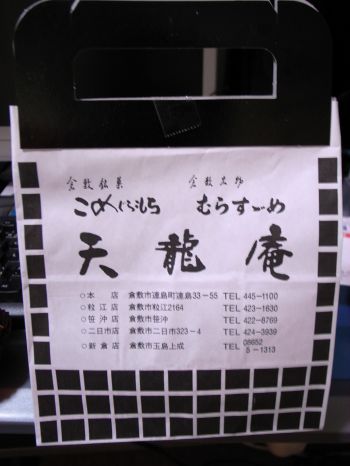 倉敷銘菓 倉敷名物
むらすゞめ
天龍庵
○本店 倉敷市連島町連島33-55 TEL 445-1100
○粒江店 倉敷市粒江2164 TEL 423-1630
○笹沖店 倉敷市笹沖 TEL 422-8769
○二日市店 倉敷市二日市323-4 TEL 424-3939
○新倉店 倉敷市玉島上成 TEL 08652
5-1313